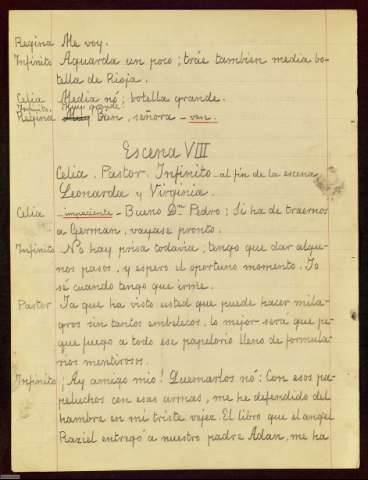 Regina Me voy.
Infinito Aguarda un poco; tráe tambien media bo-
tella de Rioja.
Celia Media nó; botella grande.
Infinito Muy grande.
Regina Bien, señora – vase.
Escena VIII
Celia. Pastor. Infinito – al fin de la escena
Leonarda y Virginia.
Celia – impaciente – Bueno Dn Pedro: Si ha de traernos
a German, vayase pronto.
Infinito No hay prisa todavia; tengo que dar algu-
nos pasos, y espero el oportuno momento. Yo
sé cuando tengo que irme.
Pastor Ya que ha visto usted que puede hacer mila-
gros sin tantos embelecos, lo mejor será que pe-
gue fuego a todo ese papelorio lleno de formula-
rios mentirosos.
Infinito ¡Ay amigo mio! Quemarlos nó: Con esos pa-
peluchos con esas armas, me he defendido del
hambre en mi triste vejez. El libro que el angel
Raziel entregó a nuestro padre Adan, me ha